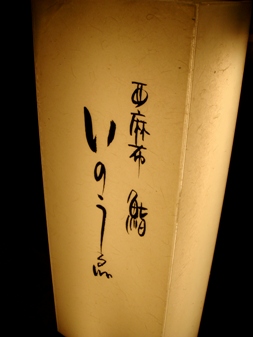 西麻布 鮨
いのうゑ